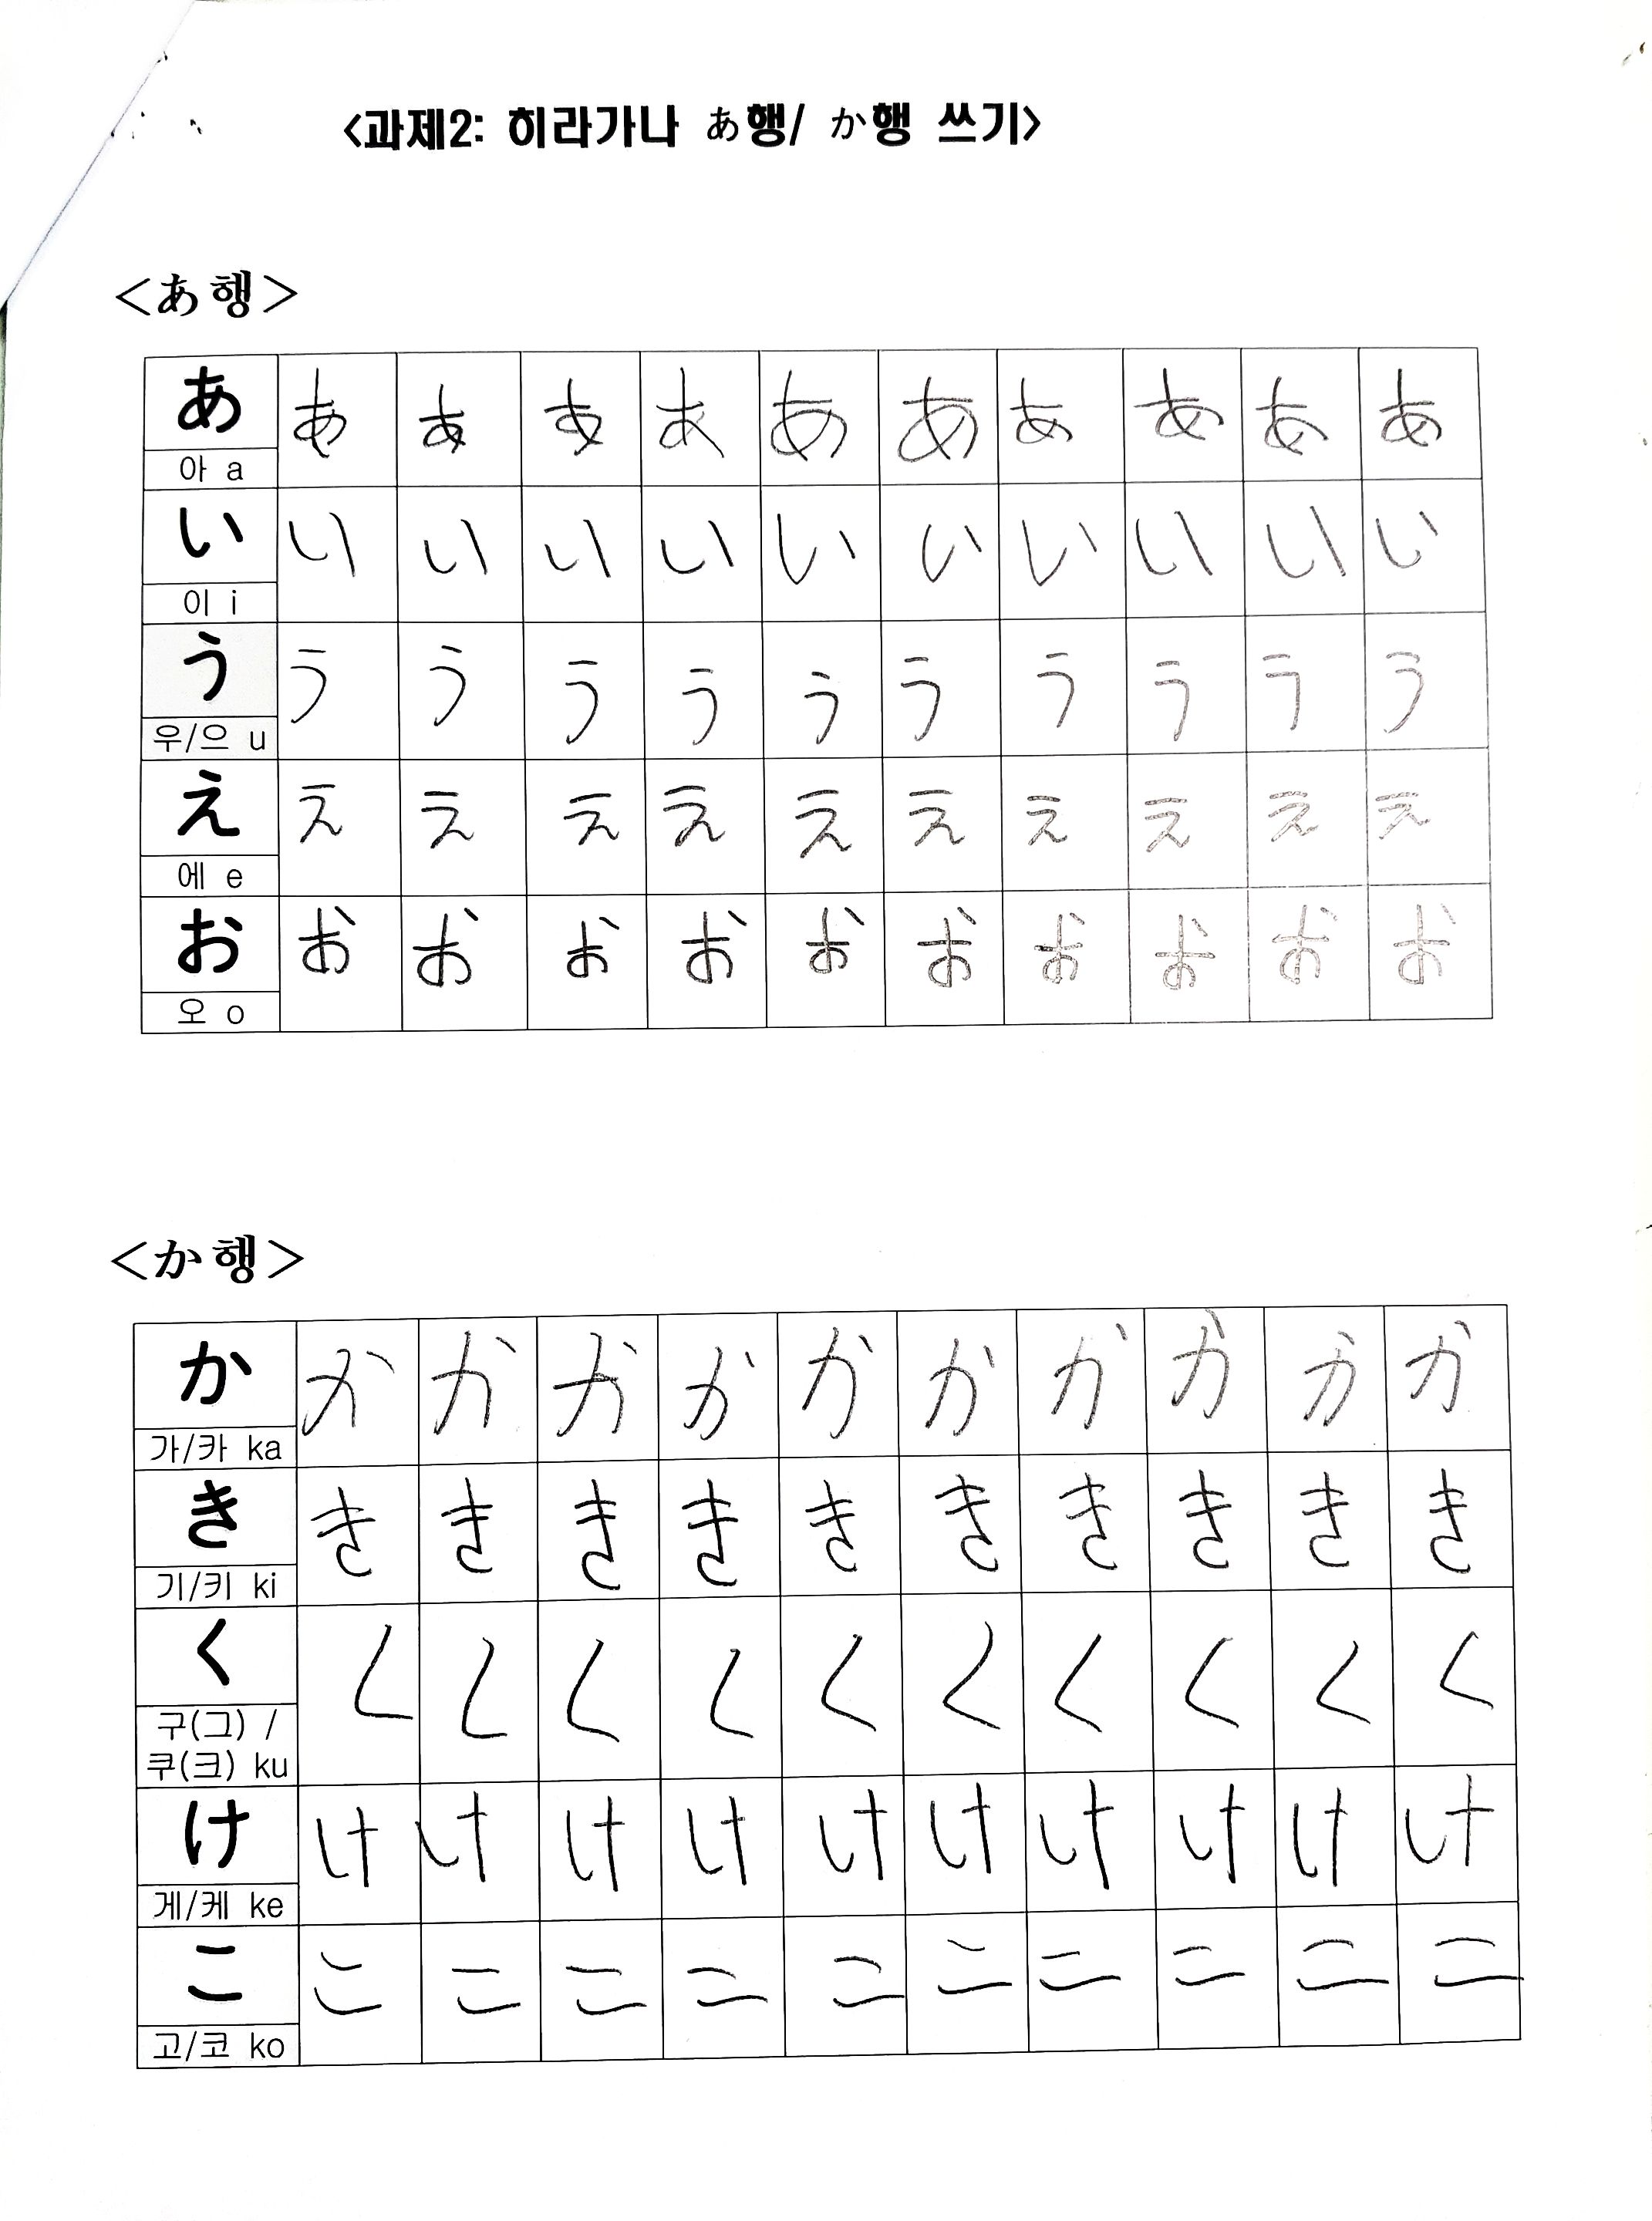 <과제2: 히라가나 あ행/ か행 쓰기>
<あ행>
あ あ あ あ あ あ あ あ あ あ あ
아 a
い い い い い い い い い い い
이 i
う う う う う う う う う う う
우/으 u
え え え え え え え え え え え
에 e
お お お お お お お お お お お
오 o
<か행>
か か か か か か か か か か か
가/카 ka
き き き き き き き き き き き
기/키 ki
く く く く く く く く く く く
구(그) /
쿠(크) ku
け け け け け け け け け け け
게/케 ke
こ こ こ こ こ こ こ こ こ こ こ
고/코 ko